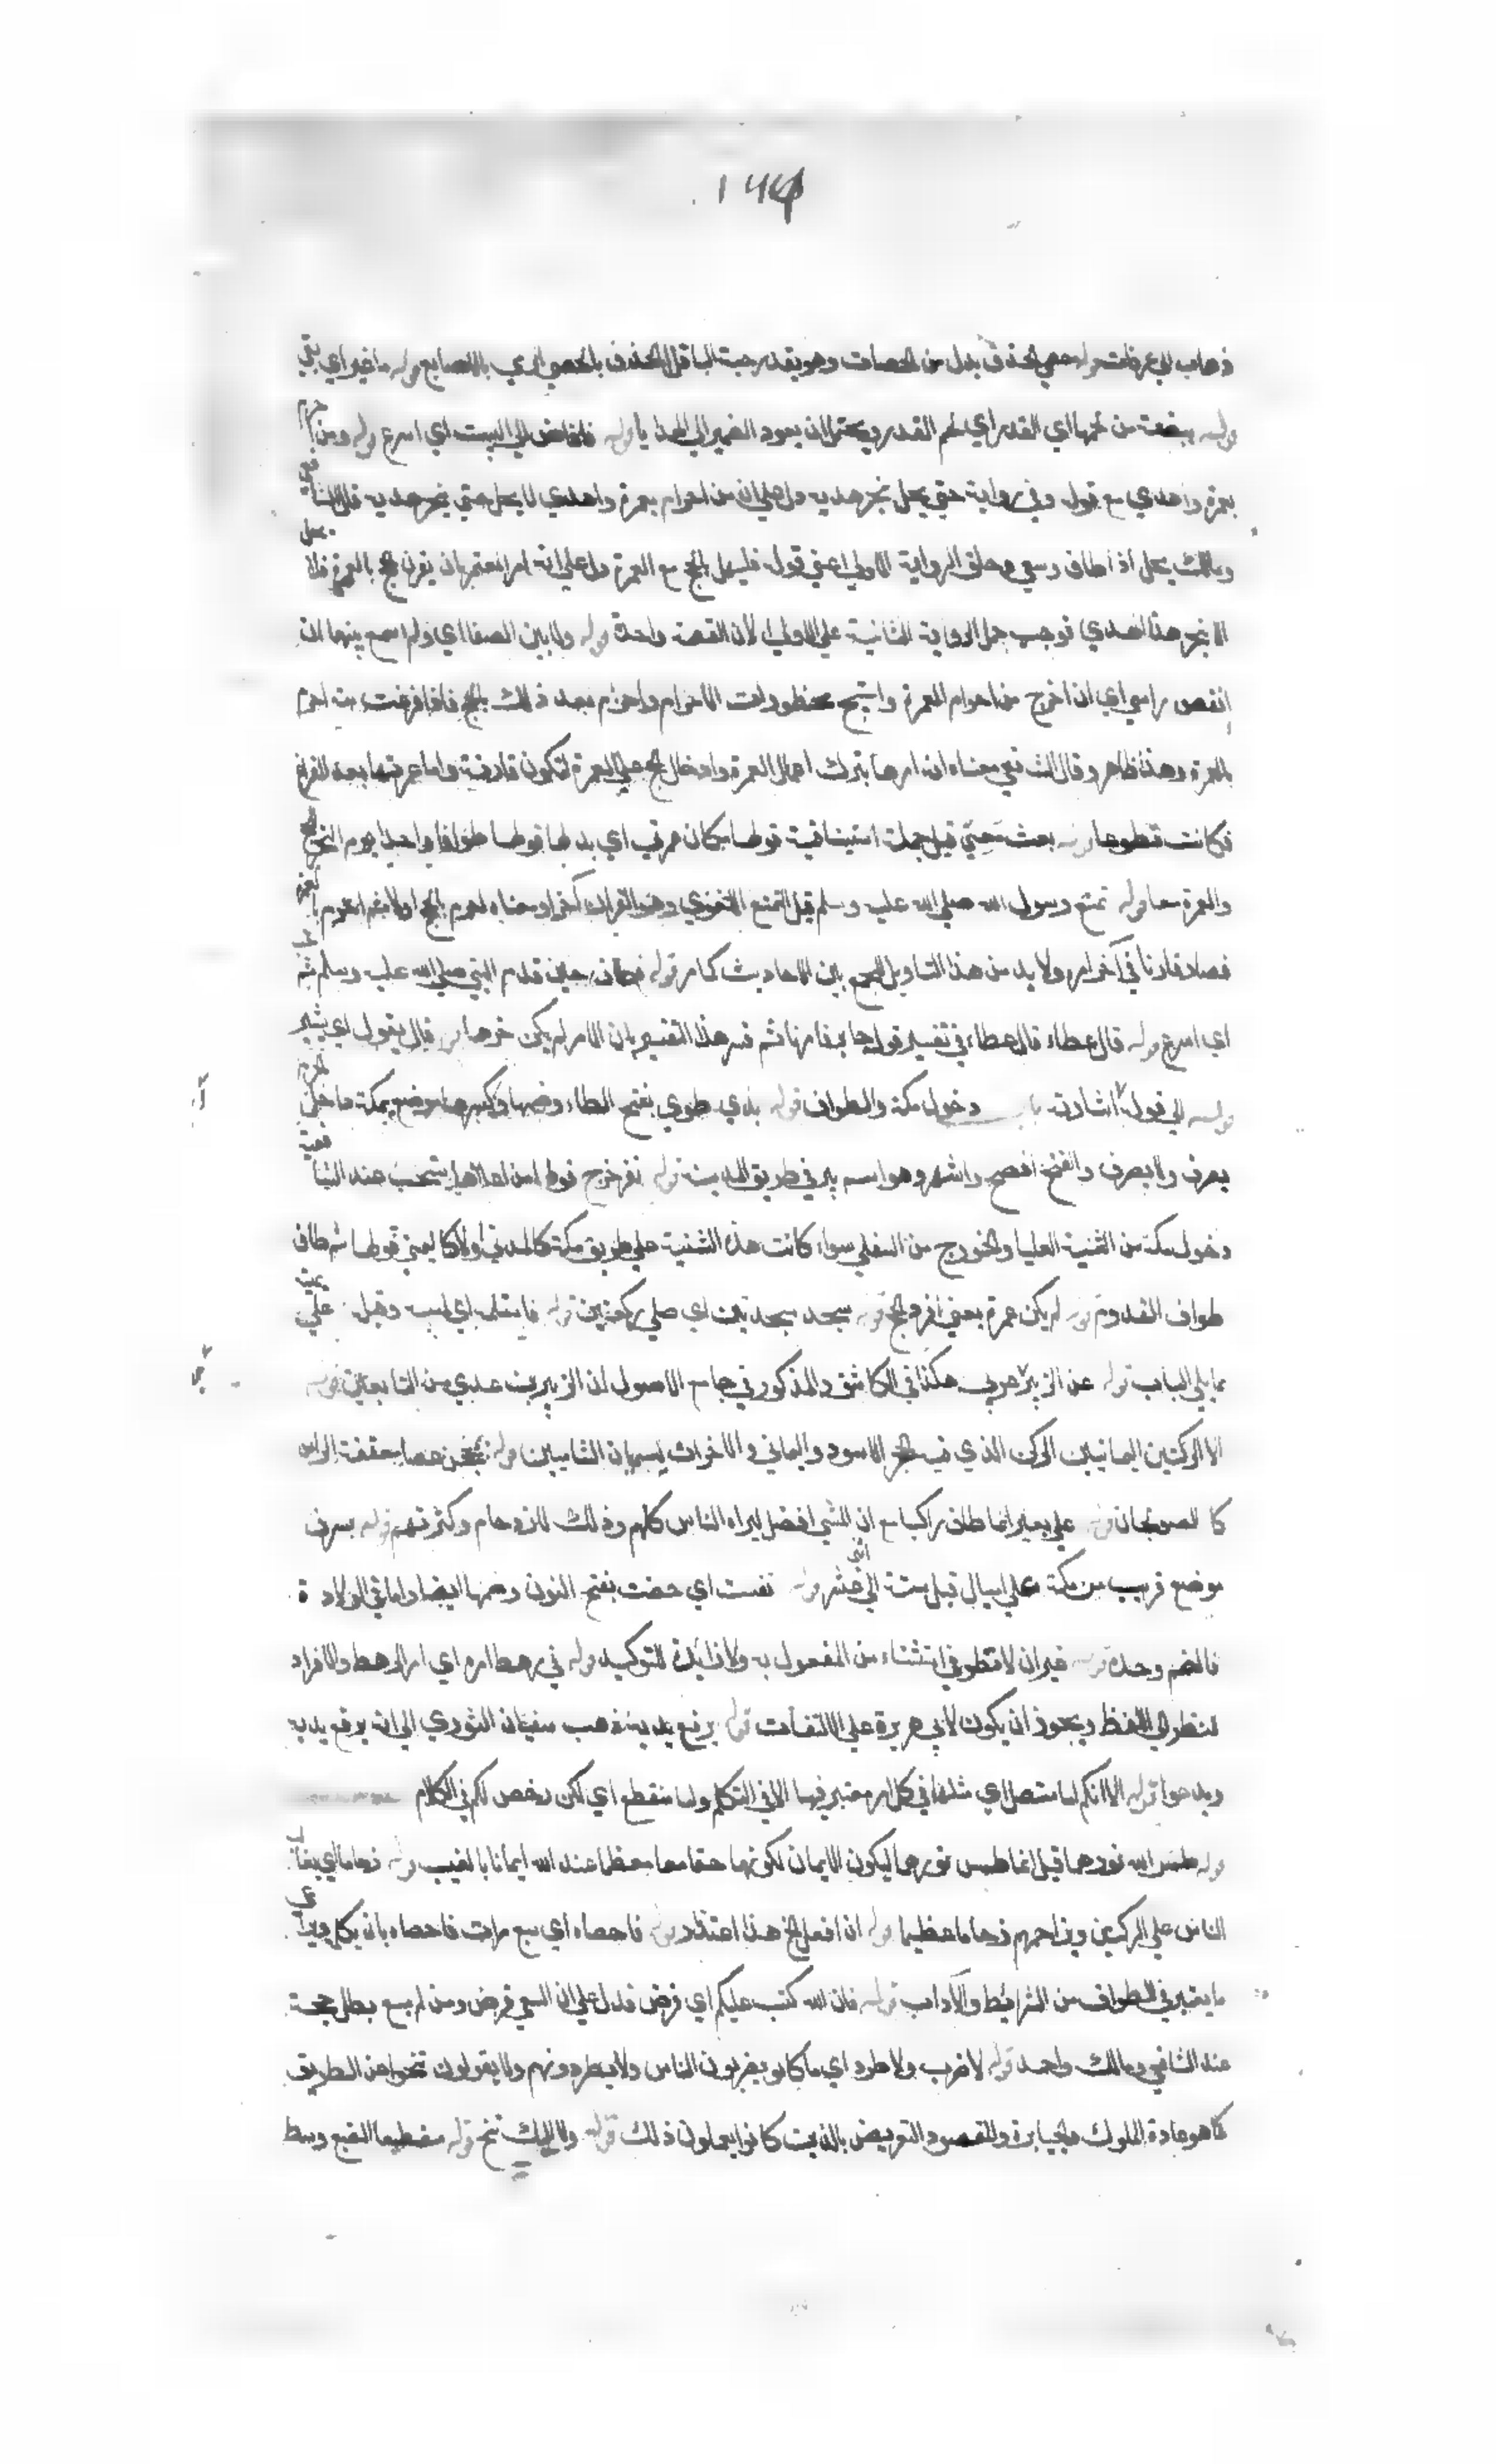 ١٧٤
ذهاب الي عرفات قوله حصي الخذف بدل من الحصيات وهو بقدر حبة الباقلا الخذف بالحصي الرمي بالاصابع قوله ما غبر اي بقي
قوله ببضعة من لحمها اي القدر اي لحم القدر ويحتمل ان يعود الضمير الي الهدايا قوله فافاض الي البيت اي اسرع قوله ومن احرم
بعمرة واهدي مع قوله وفي رواية حتي يحل بنحر هديه دل علي ان من احرام بعمرة واهدي لا يحل حتي ينحر هديه قال الشافعي
ومالك يحل اذا طاف وسعي وحلق الرواية الاولي اعني قوله فليهل بالحج مع العمرة دل علي انه امر المعتمر بان يقرن الحج بالعمرة فلا يحل
الا بنحر هذا الهدي فوجب حمل الرواية الثانية علي الاولي لان القصة واحدة قوله ولا بين الصفا اي ولم اسع بينهما ان
انقض راسي اي ان اخرج من احرام العمرة واستبيح محظورات الاحرام واحرام بعد ذلك بالحج فاذا فرغت منه احرم
بالعمرة وهذا ظاهر وقال الشافعي معناه انه امرها بترك اعمال العمرة وادخال الحج علي العمرة لتكون قارنة واما عمرتها بعد الفراغ
فكانت تطوعا قوله بعث معي قيل جملة استينافية قولها مكان عمرتي اي بدلها قولها طوافا واحدا يوم النحر للحج
والعمرة معا قوله تمتع رسول الله صلي الله عليه وسلم قيل التمتع اللغوي وهو القران آخرا ومعناه احرم بالحج اولا ثم احرم بالعمرة
فصار قارنا في آخر امره ولا بد من هذا التاويل للجمع بين الاحاديث كما مر قوله فطاف حين قدم النبي صلي الله عليه وسلم ثم خب
اي اسرع قوله قال عطاء قال عطاء في تفسير قول جابر فامرنا ثم فسر هذا التفسير بان الامر لم يكن جزما قوله قال يقول اي يشير
قوله الي قوله اشارته باب دخول مكة والطواف قوله بذي طوي بفتح الطاء وضمها وكسرها موضع بمكة داخل الحرم
يصرف ولا يصرف والفتح افصح واشهر وهو اسم بير في طريق المدينة قوله نفر خرج قولها من اعلاها يستحب عند الشافعية
دخول مكة من الثنية العليا والخروج من السفلي سواء كانت هذه الثنية علي طريق مكة كالمدني او لا كاليمني قولها ثم طاف
طواف القدوم قوله لم يكن عمرة يعني افرد الحج قوله سجد سجدتين اي صلي ركعتين قوله
مما يلي الباب قوله عن الزبير عربي هكذا في الكاشف والمذكور في جامع الاصول ان الزبير بن عدي من التابعين قوله
الا الركنين اليمانيين الركن الذي فيه الحجر الاسود واليماني والاخران يسميان الشاميين قوله بمحجن عصا معقفة الراس
كا لصولجان قوله علي بعير انما طاف راكبا مع ان المشي افضل ليراه الناس كلهم وذلك للازدحام وكثرتهم قوله بسرف
موضع قريب من مكة علي اميال قيل ستة الي اثني عشر قوله نفست اي حضت بفتح النون وضمها ايضا واما في الولادة
فالضم وحده قوله غير ان لا تطوفي استثناء من المفعول به ولا زائدة للتوكيد قوله في رهط امره اي امر الرهط والافراد
لنظر الي اللفظ ويجوز ان يكون لابي هريرة علي الالتفات قوله يرفع يديه ذهب سفيان الثوري الي انه يرفع يديه
ويدعوا قوله الا انكم اما متصل اي مثلها في كل امر معتبر فيها الا في التكلم واما منقطع اي لكن رخص لكم في الكلام
قوله طمس الله نورهما قيل انما طمس نورهما ليكون الايمان لكونهما حقا معظما عند الله ايمانا بالغيب قوله زحاما اي يغالب
الناس علي الركنين ويزاحمهم زحاما عظيما قوله ان افعل الخ هذا اعتذار قوله فاحصاه اي سبع مرات فاحصاه بان يكمل ويراعي
ما يعتبر في الطواف من الشرائط والآداب قوله فان الله كتب عليكم اي فرض فدل علي ان السعي فرض ومن لم يسع بطل حجه
عند الشافعي ومالك واحمد قوله لا ضرب ولا طرد اي ما كانو يضربون الناس ولا يطردونهم ولا يقولون تنحوا عن الطريق
كما هو عادة الملوك والجبابرة والمقصود التعريض بالذين كانوا يعملون ذلك قوله ولا اليك تنح قوله مضطبعا الضبع وسط